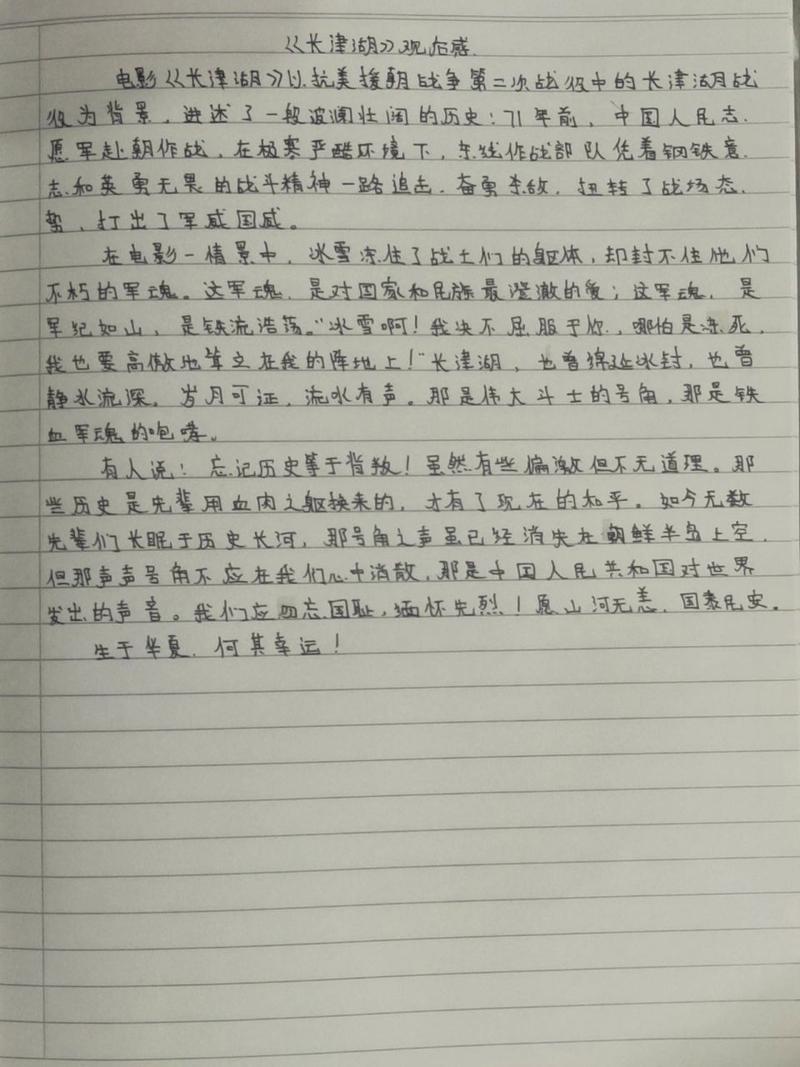 《长津湖》观后感.
电影《长津湖》以抗美援朝战争第二次战役中的长津湖战
役为背景，讲述了一段波澜壮阔的历史：71年前，中国人民志
愿军赴朝作战，在极寒严酷环境下，东线作战部队凭着钢铁意
志和英勇无畏的战斗精神一路追击，奋勇杀敌，扭转了战场态
势，打出了军威国威。
在电影一情景中，冰雪冻住了战士们的躯体，却封不住他们
不朽的军魂。这军魂，是对国家和民族最澄澈的爱；这军魂，是
军纪如山，是铁流浩荡。"冰雪啊！我决不屈服于你，哪怕是冻死，
我也要高傲地耸立在我的阵地上！"长津湖，也曾绵延冰封，也曾
静水流深。岁月可证，流水有声。那是伟大斗士的号角，那是铁
血军魂的咆哮。
有人说：忘记历史等于背叛！虽然有些偏激但不无道理。那
些历史是先辈用血肉之躯换来的，才有了现在的和平。如今无数
先辈们长眠于历史长河，那号角之声虽已经消失在朝鲜半岛上空，
但那声声号角不应在我们心中消散，那是中国人民共和国对世界
发出的声音。我们应勿忘国耻，缅怀先烈！愿山河无恙，国泰民安。
生于华夏，何其幸运！